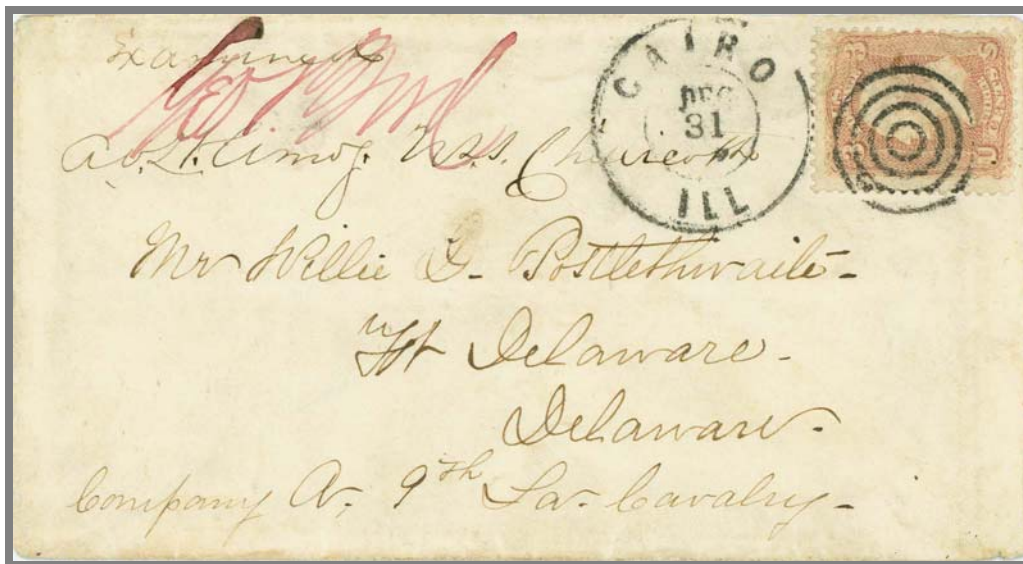 Examined
A. L. Amos. U.S.S.
CAIRO
DEC
31
ILL
Mr Willie G. Postlethwaite-
Ft Delaware-
Delaware-
Company A, 9th La- Cavalry-